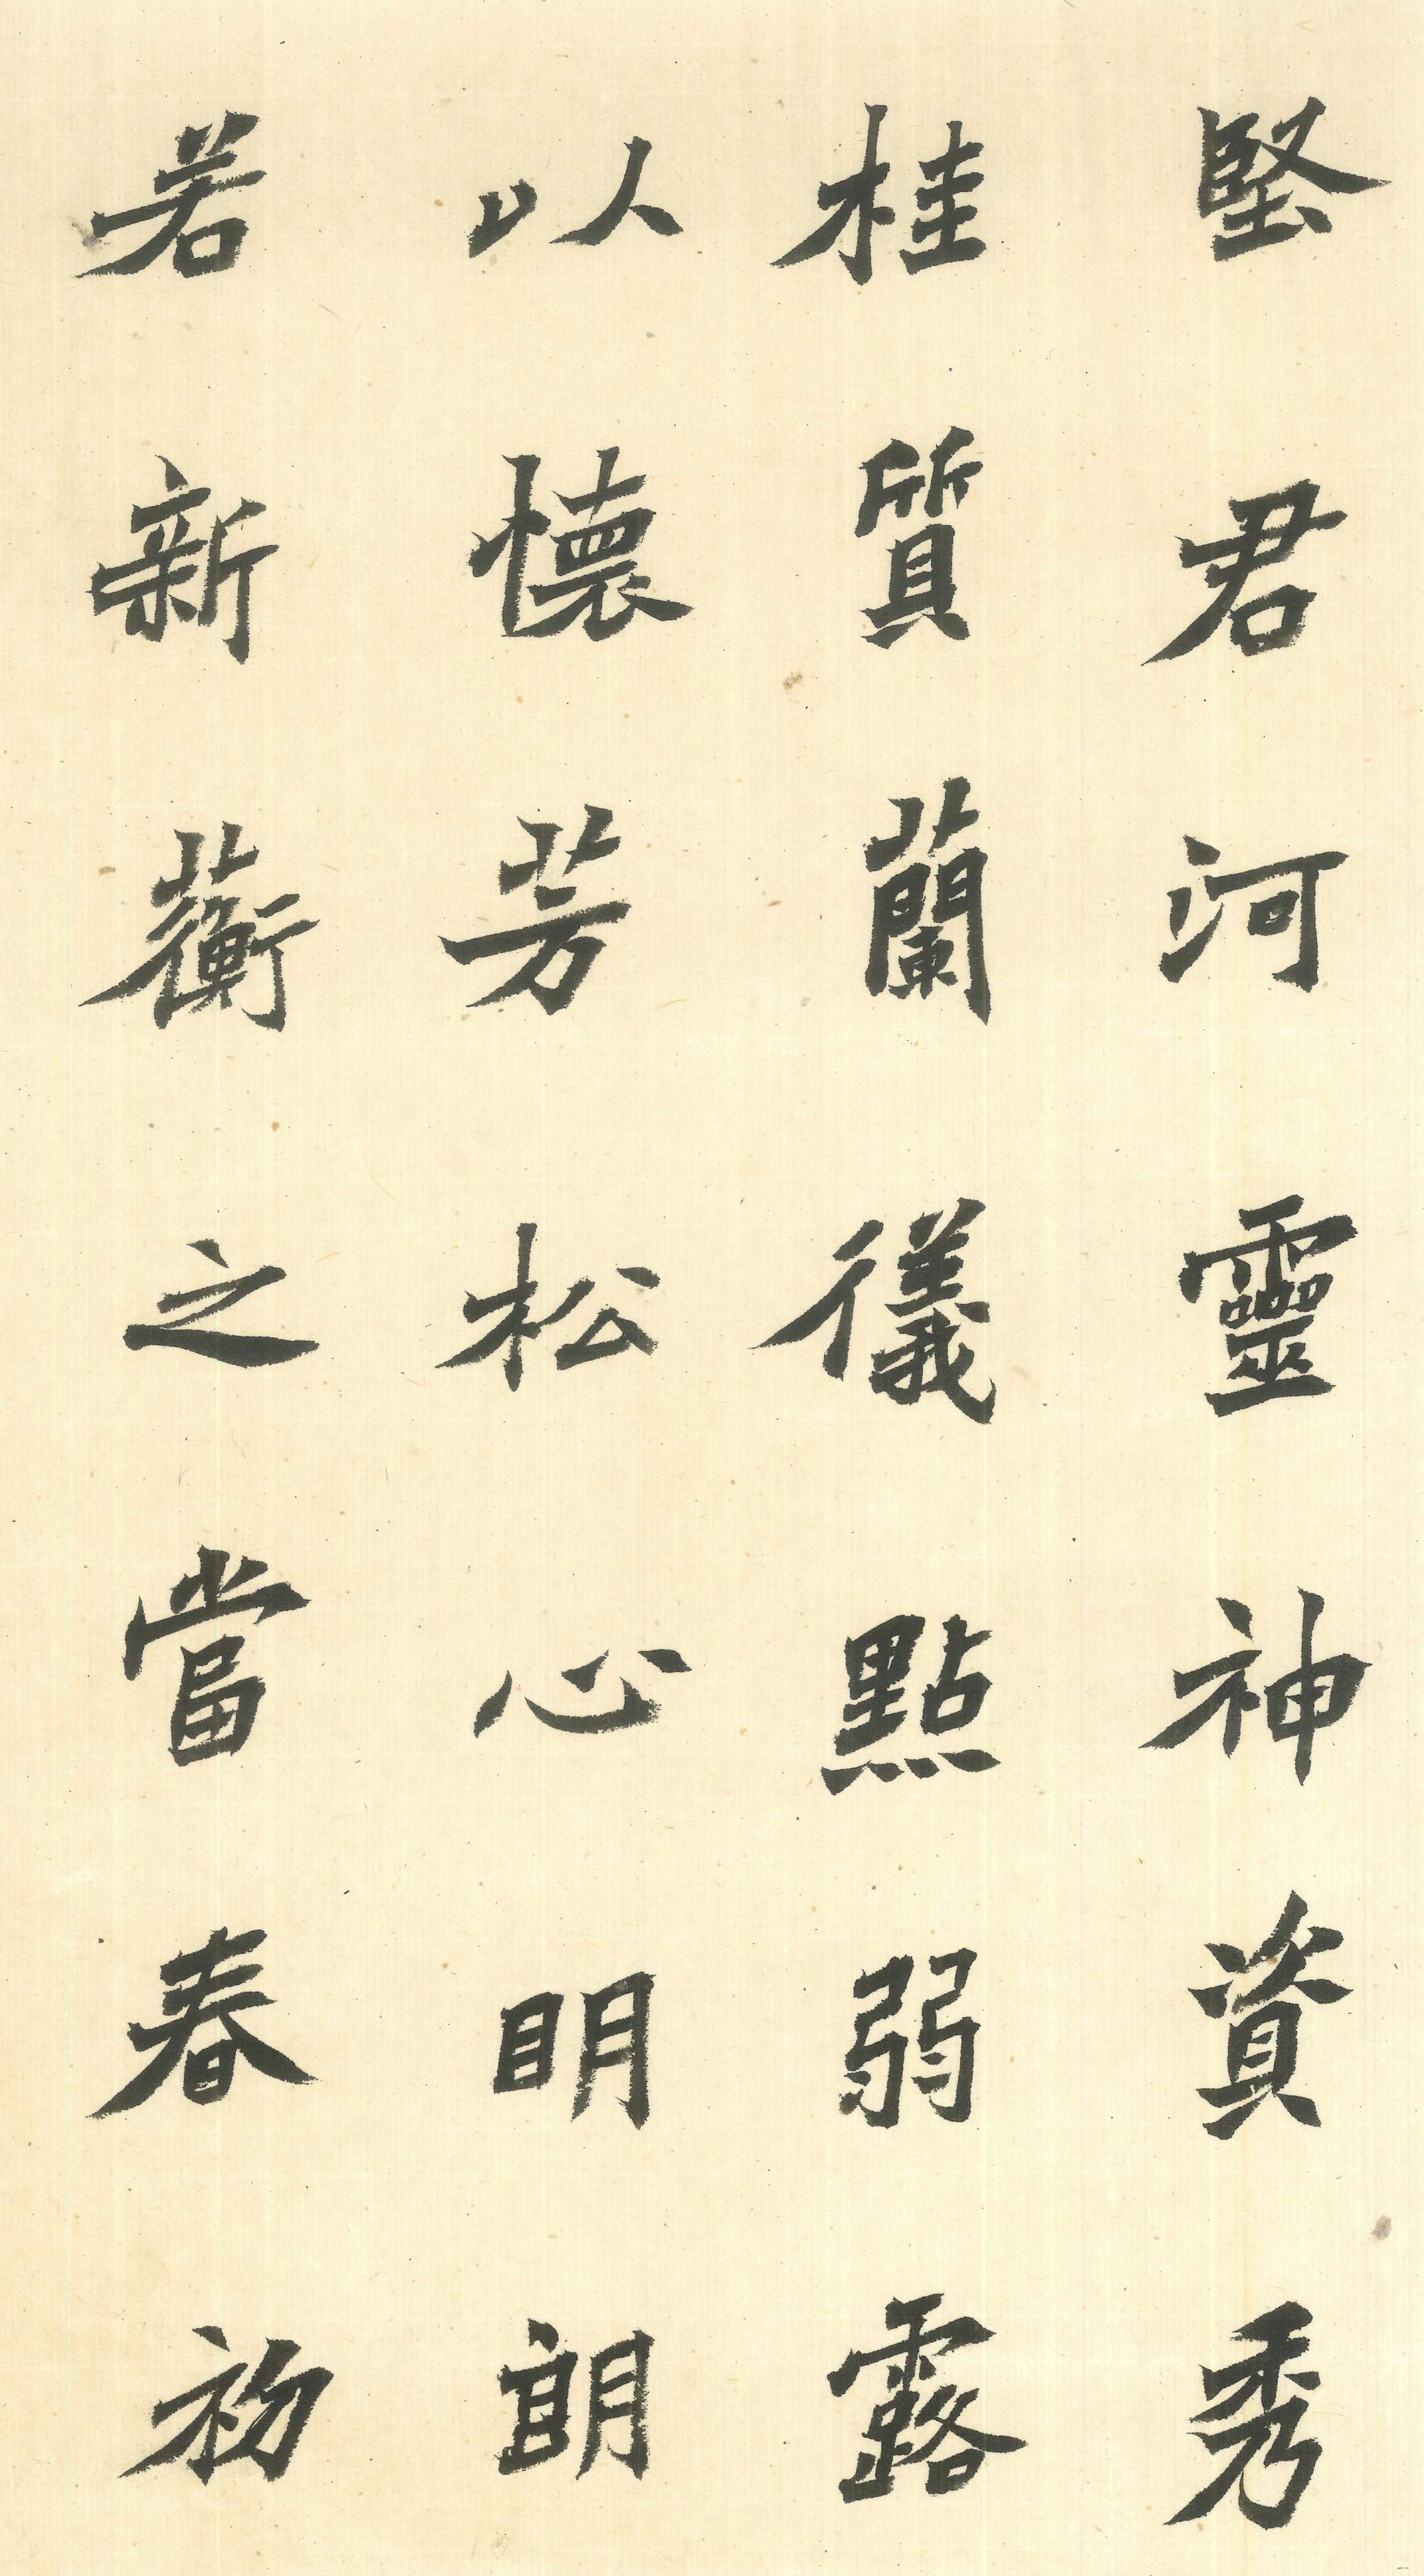 堅君河靈神資秀
桂質蘭儀點弱露
以懷芳松心明朗
若新蘅之當春初